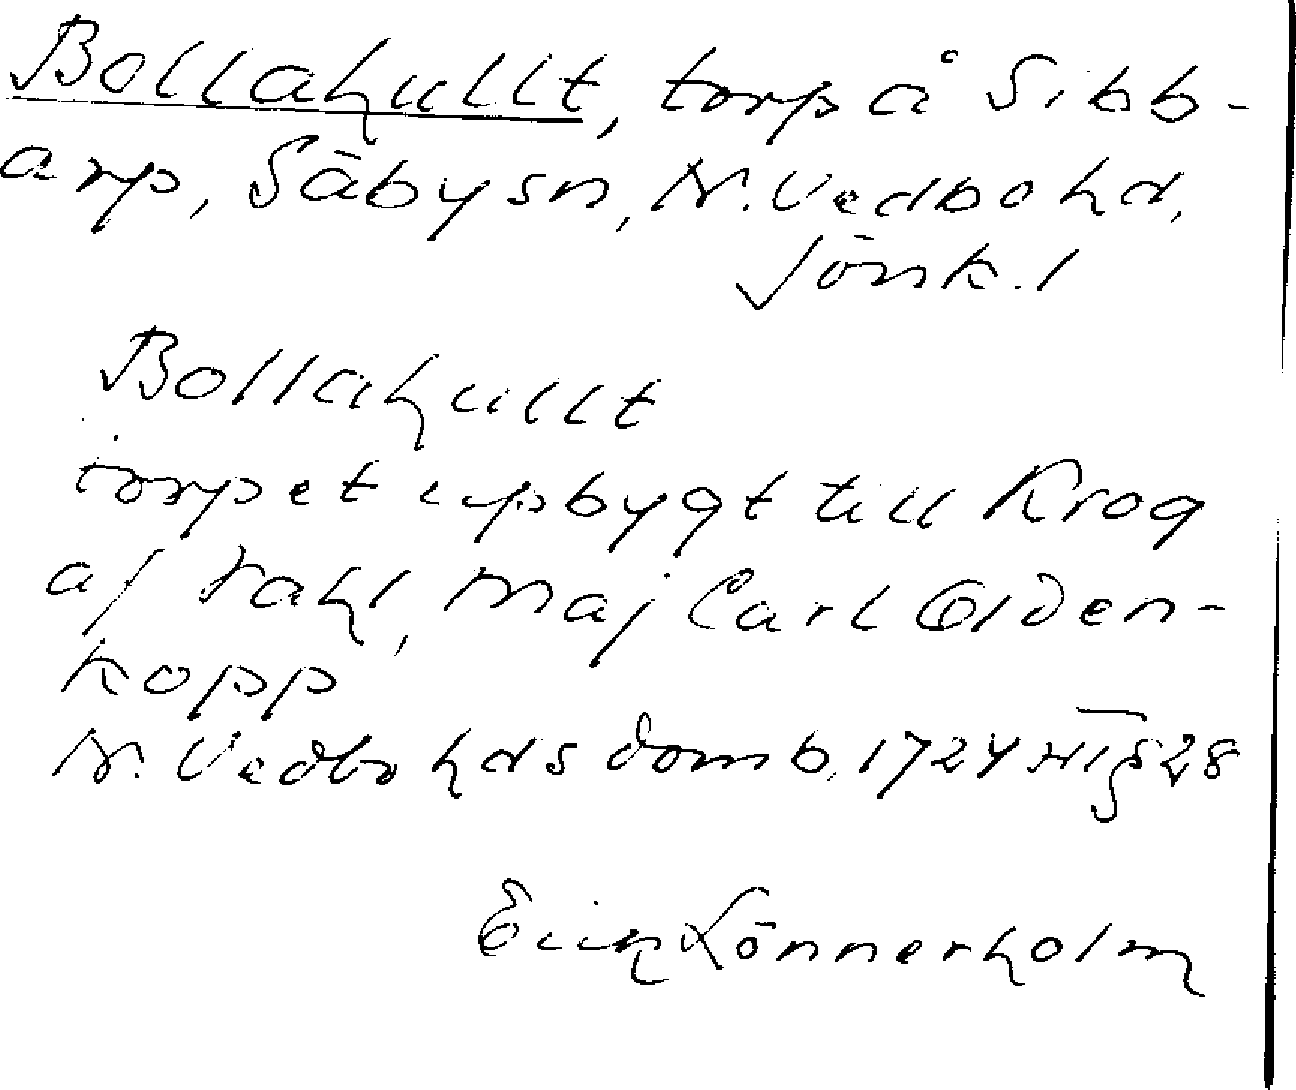 Bollahullt, torp å Sibb-
arp, Säby sn, N. Vedbo hd,
Jönk. l
Bollahullt
torpet upbygt till Krog
af Maj Carl Olden-
kopp
N. Vedbo hds domb. 1724 § 28
Erik Lönnerholm